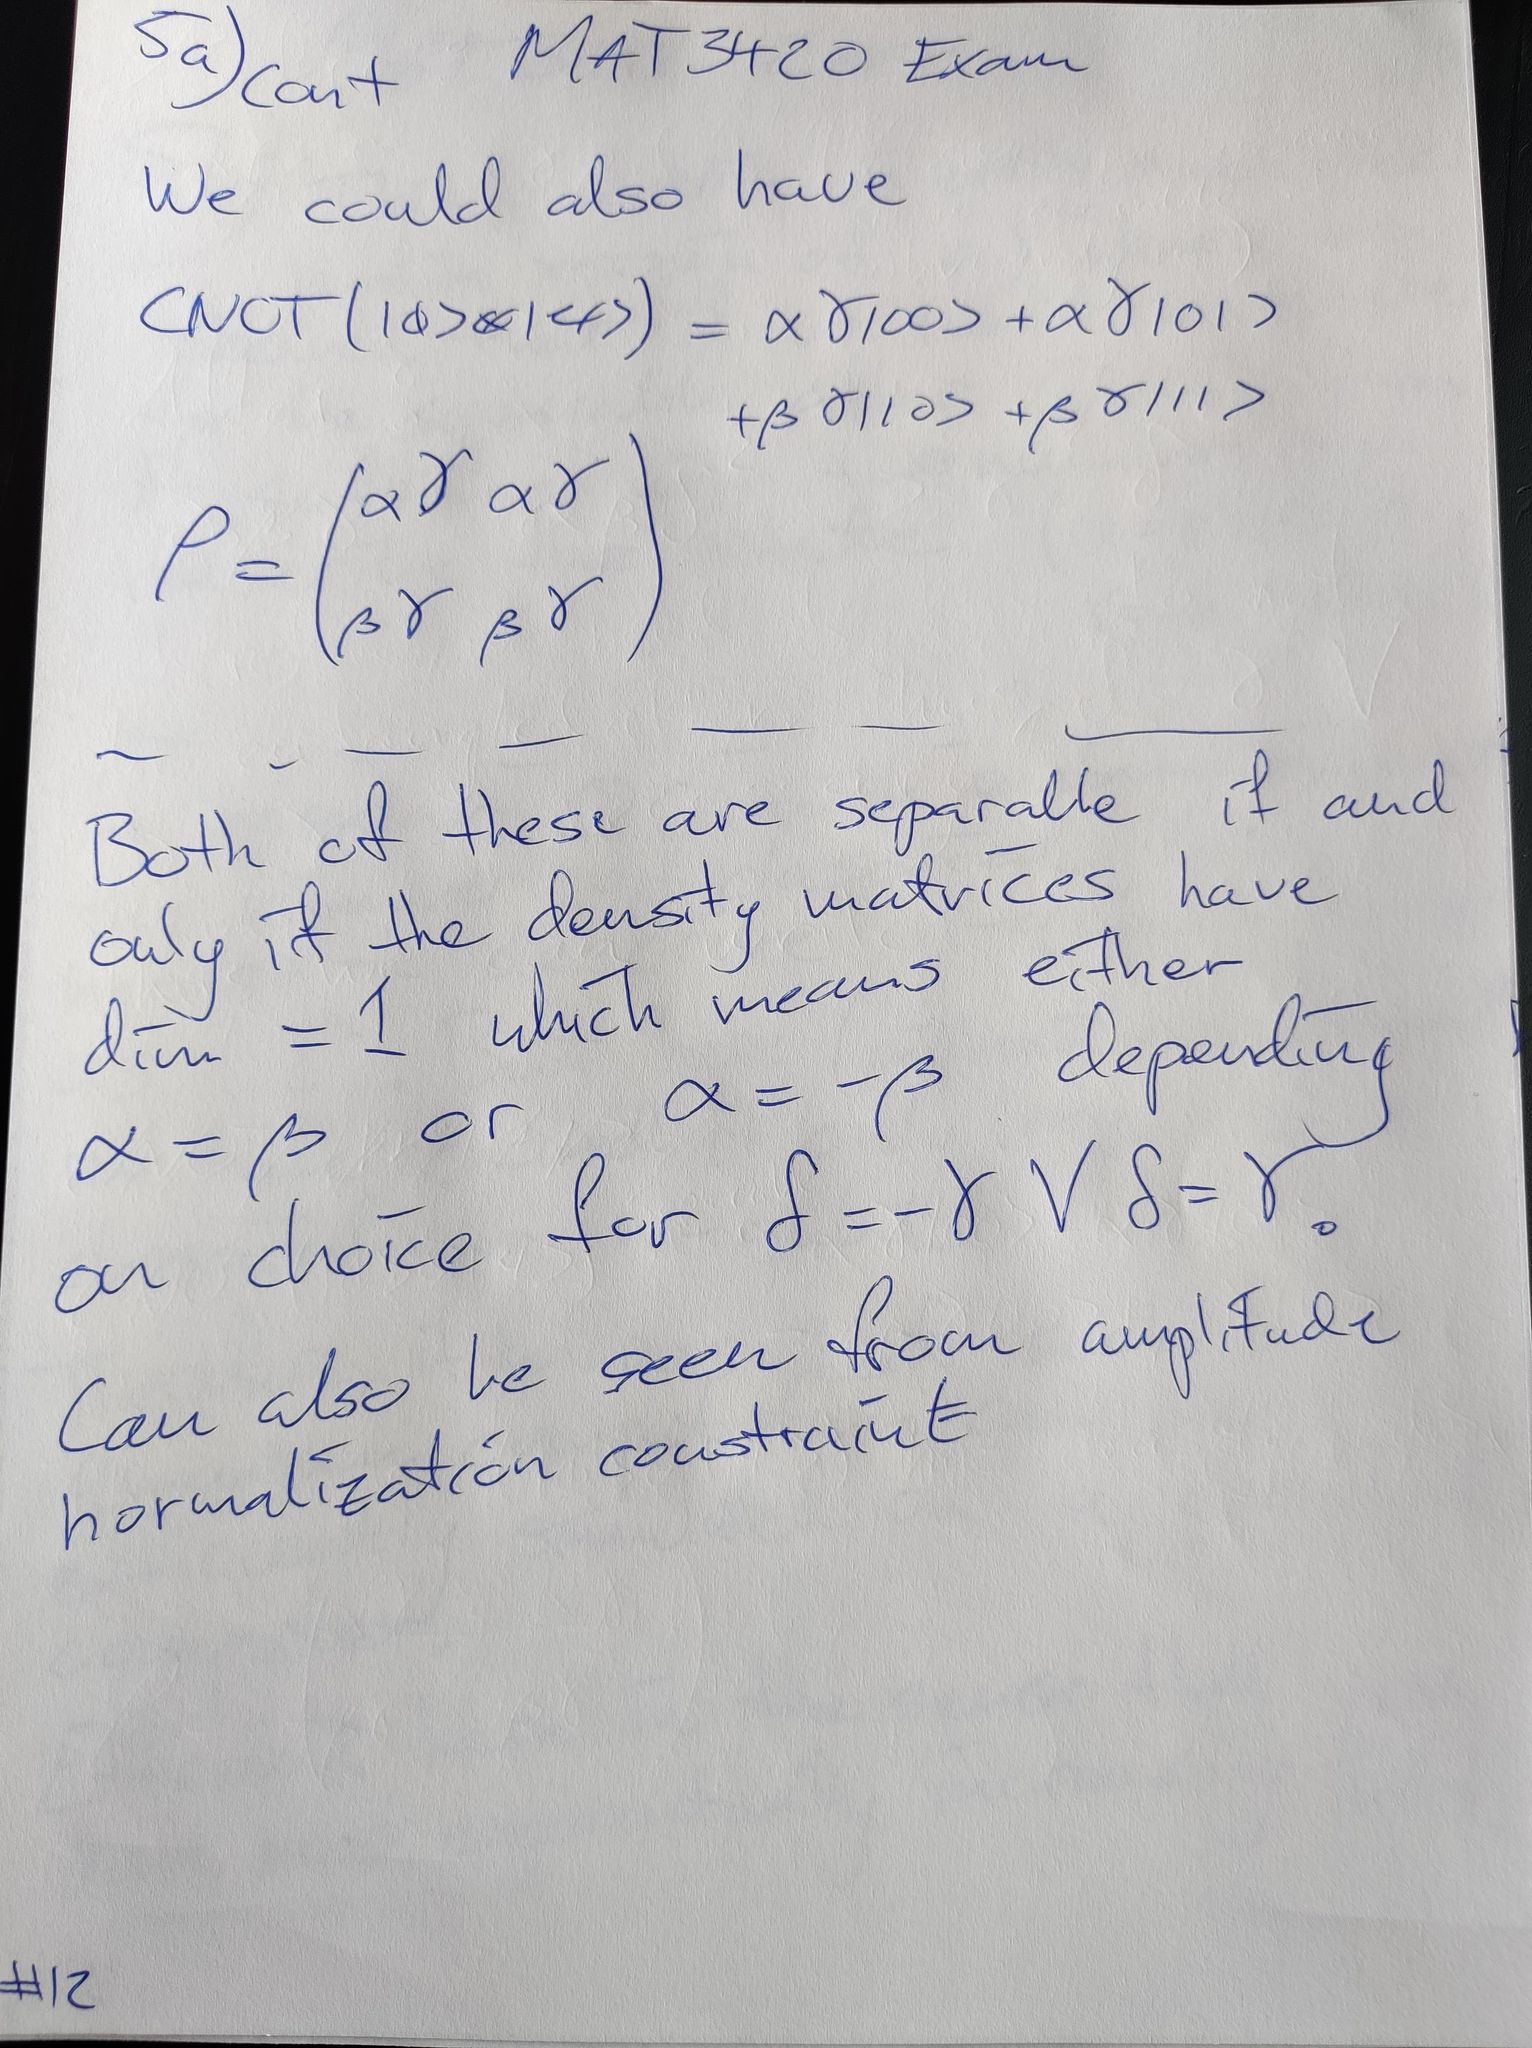 5a) Cont MAT3420 Exam
We could also have
CNOT(|ϕ>⊗|ψ>) = αγ|00> + αγ|01>
+βγ|10> + βγ|11>
ρ = (αγ αγ
βγ βγ)
Both of these are separable if and
only if the density matrices have
dim = 1 which means either
α = β or α = -β depending
on choice for δ = -γ ∨ δ = γ.
Can also be seen from amplitude
normalization constraint
#12